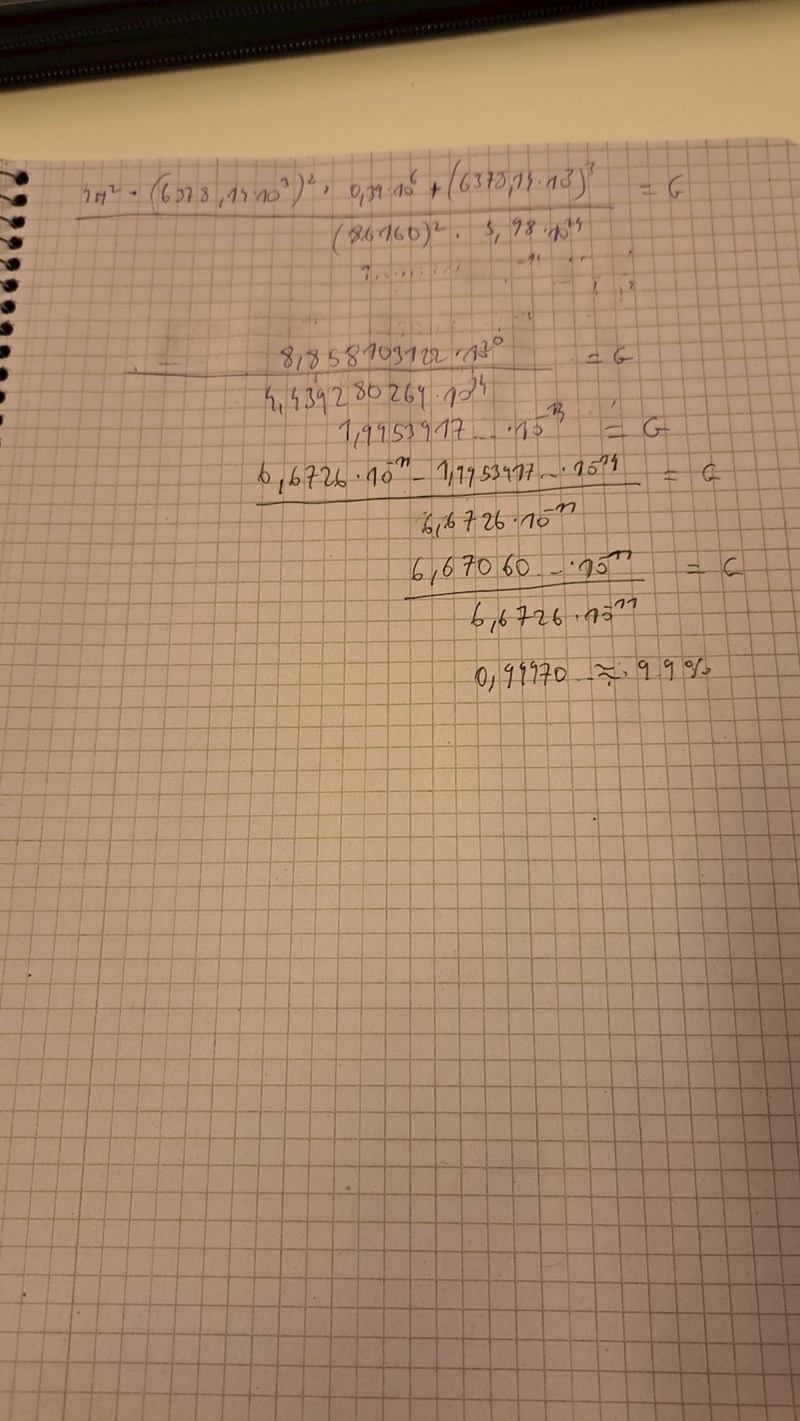 (6378,14·10³)² · 0,39·10⁶ + (6378,14·10³)³ = G
(86160)² · 5,98·10²⁴
8,858103122·10²⁰ = G
4,439280264·10³⁴
1,9953917...·10⁻¹³ = G
6,6726·10⁻¹¹ - 1,9953917...·10⁻¹⁴ = G
6,6726·10⁻¹¹
6,67060...·10⁻¹¹ = G
6,6726·10⁻¹¹
0,99970... ≈ 99%